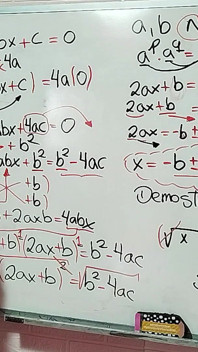 bx + c = 0
x4a
bx + c) = 4a(0)
abx + 4ac = 0
+ b²
abx + b² = b² - 4ac
+ b)
+ b)
+ 2axb = 4abx
+ b)¹ (2ax + b)¹ = b² - 4ac
(2ax + b)² = √b² - 4ac
a, b
aᵖ. a𐞥
2ax + b =
2ax + b =
2ax = -b ±
x = -b ±
Demost
(√x